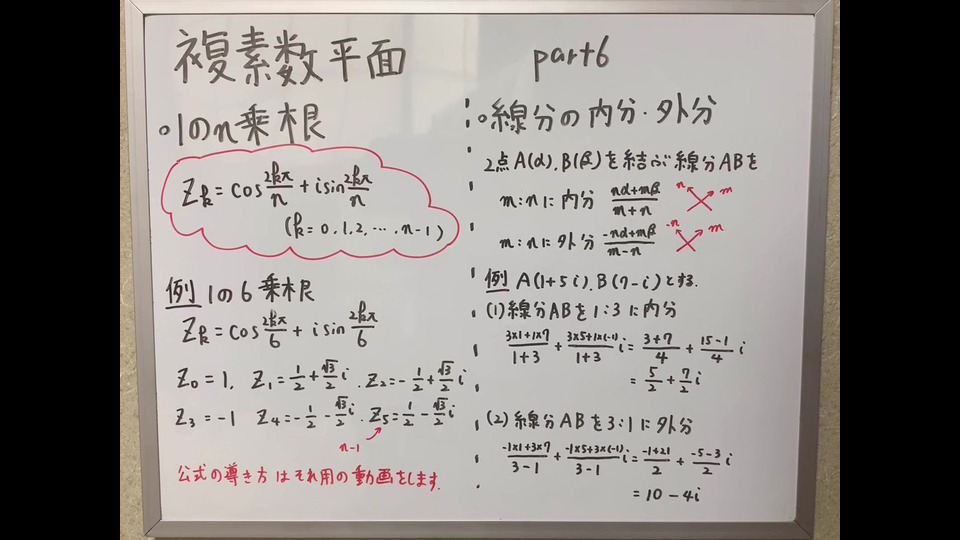 複素数平面 part6
。1のn乗根
Zk = cos 2kπ/n + i sin 2kπ/n
(k = 0, 1, 2, …, n-1)
例 1の6乗根
Zk = cos 2kπ/6 + i sin 2kπ/6
Z0 = 1, Z1 = 1/2 + √3/2 i, Z2 = -1/2 + √3/2 i
Z3 = -1 Z4 = -1/2 - √3/2 i, Z5 = 1/2 - √3/2 i
n-1
公式の導き方はそれ用の動画をします.
。線分の内分・外分
2点A(α), B(β)を結ぶ線分ABを
m:nに内分 nα+mβ/m+n n m
m:nに外分 -nα+mβ/m-n -n m
例 A(1+5i), B(7-i)とする.
(1)線分ABを1:3に内分
3×1+1×7/1+3 + 3×5+1×(-1)/1+3 i = 3+7/4 + 15-1/4 i
= 5/2 + 7/2 i
(2)線分ABを3:1に外分
-1×1+3×7/3-1 + -1×5+3×(-1)/3-1 i = -1+21/2 + -5-3/2 i
= 10-4i